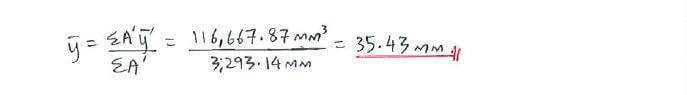 ȳ = ΣA'ȳ' / ΣA' = 116,667.87 mm³ / 3,293.14 mm = 35.43 mm